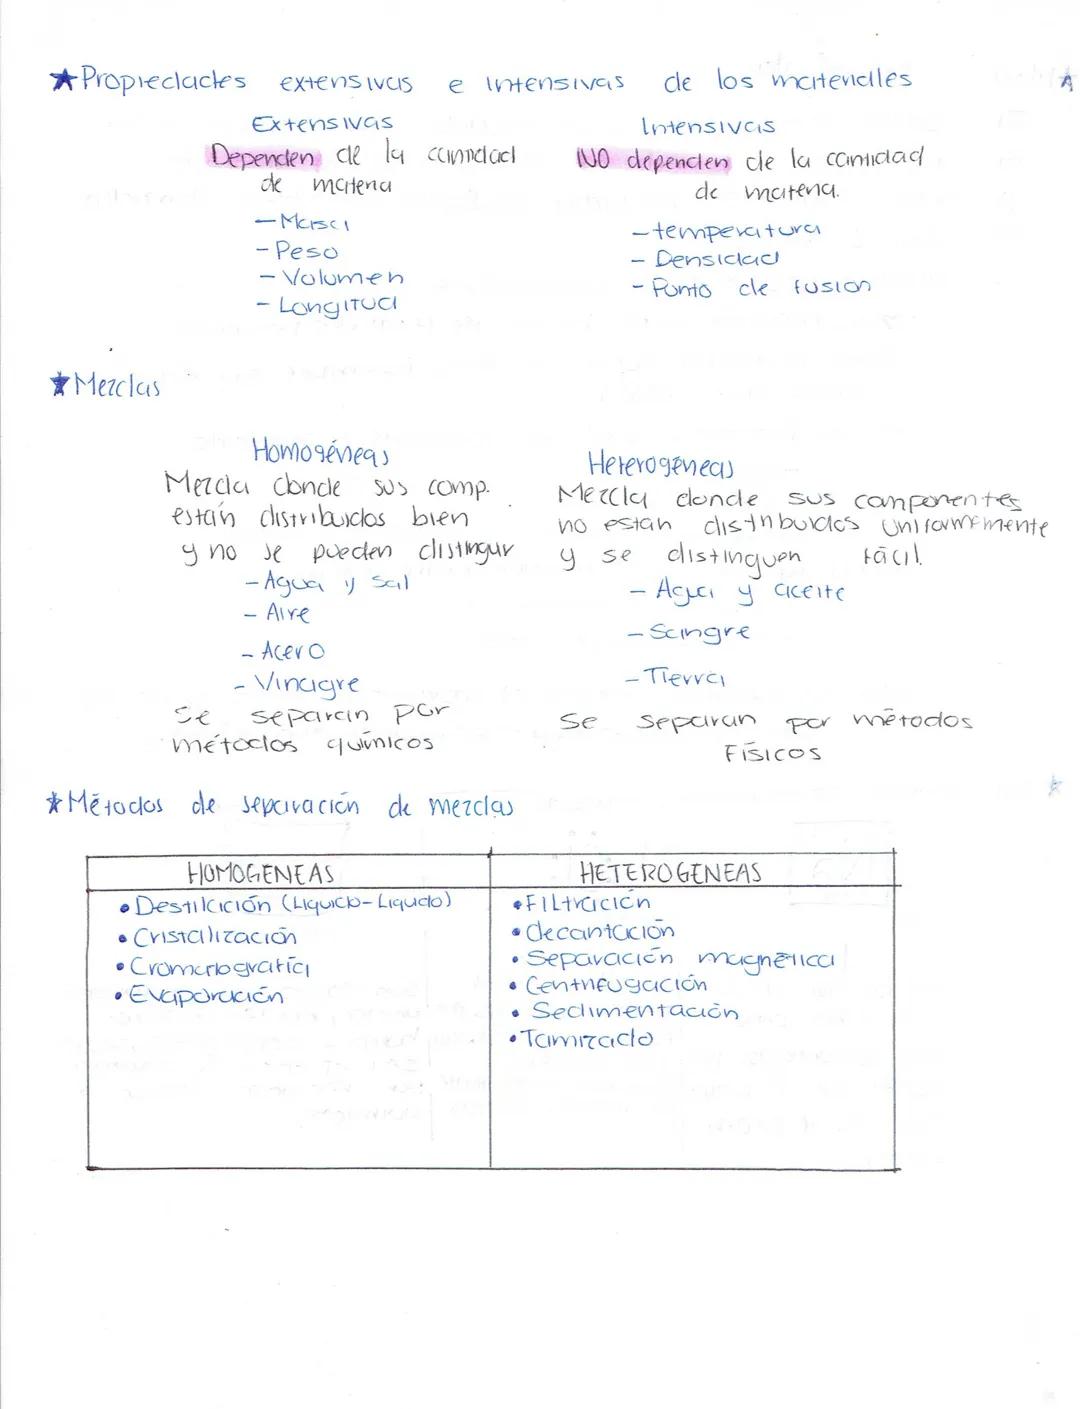 ★Propiedades extensivas e intensivas de los materialles
Extensivas
Dependen de la cantidad
de materia
-Masa
-Peso
-Volumen
-Longitud
Intensivas
NO dependen de la cantidad
de materia.
-temperatura
-Densidad
-Punto de fusion
★Mezclas
Homogéneas
Mezcla donde sus comp.
están distribuidos bien
y no se pueden distingur
-Agua y sal
-Aire
-Acero
-Vinagre
se separan por
métodos químicos
Heterogéneas
Mezcla donde sus componentes
no están distribuidos uniformemente
y se distinguen fácil.
-Agua y aceite
-Sangre
-Tierra
Se separan por métodos
Físicos
★Métodos de separación de mezclas
HOMOGENEAS
•Destilación (Liquido-Liqudo)
•Cristalización
•Cromatografía
•Evaporación
HETEROGENEAS
•Filtración
•decantación
•Separación magnética
•Centrifugación
•Sedimentación
•Tamizado